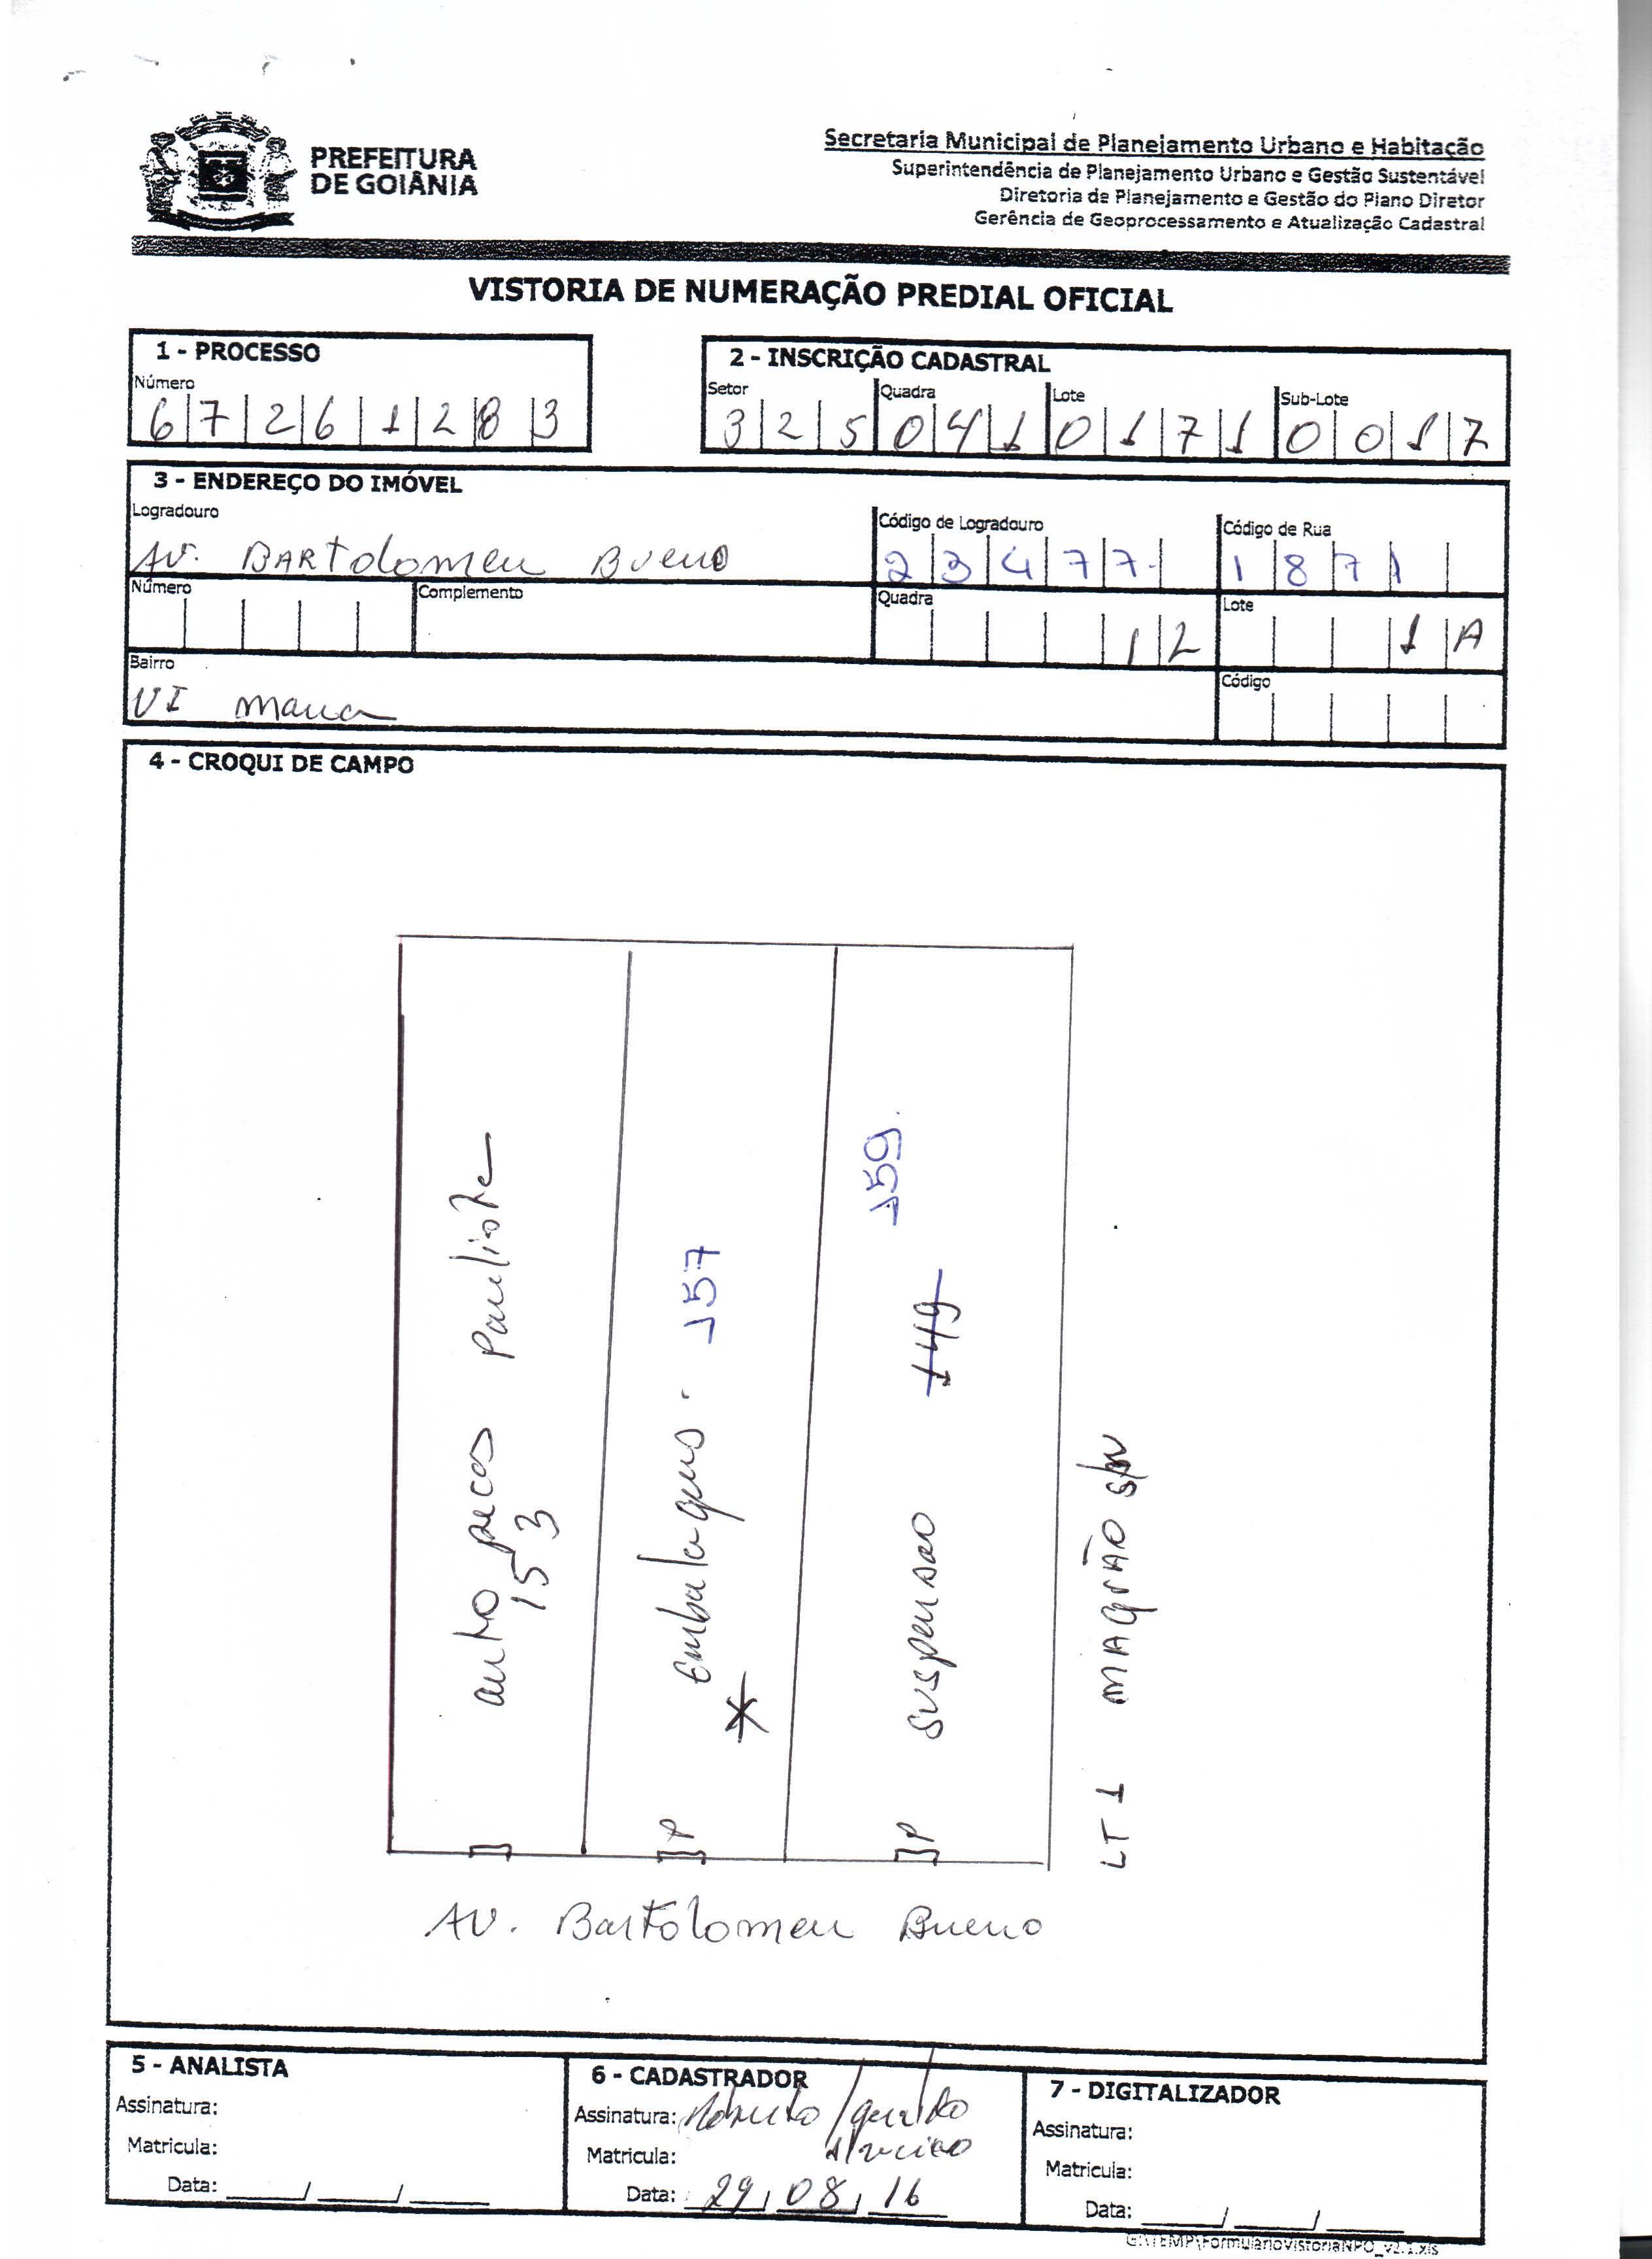 PREFEITURA
DE GOIÂNIA
Secretaria Municipal de Planejamento Urbano e Habitação
Superintendência de Planejamento Urbano e Gestão Sustentável
Diretoria de Planejamento e Gestão do Plano Diretor
Gerência de Geoprocessamento e Atualização Cadastral
VISTORIA DE NUMERAÇÃO PREDIAL OFICIAL
1 - PROCESSO
Número
6 7 2 6 1 2 8 3
2 - INSCRIÇÃO CADASTRAL
Setor Quadra Lote Sub-Lote
3 2 5 0 4 1 0 1 7 1 0 0 1 7
3 - ENDEREÇO DO IMÓVEL
Logradouro Código de Logradouro Código de Rua
AV. BARTolomeu Bueno 2 3 4 7 7 1 8 7 1
Número Complemento Quadra Lote
1 2 1 A
Bairro Código
VI maua
4 - CROQUI DE CAMPO
auto pecas Pauliste
153
Embalagens - 157
suspensao 149 159.
LT 1 MAGRÃO S/N
P
P
AV. Bartolomeu Bueno
5 - ANALISTA
Assinatura:
Matricula:
Data: / /
6 - CADASTRADOR
Assinatura: Roberto /
Matricula:
Data: 29/08/16
7 - DIGITALIZADOR
Assinatura:
Matricula:
Data: / /
G:\TEMP\FormularioVistoriaNPO_v2.1.xls